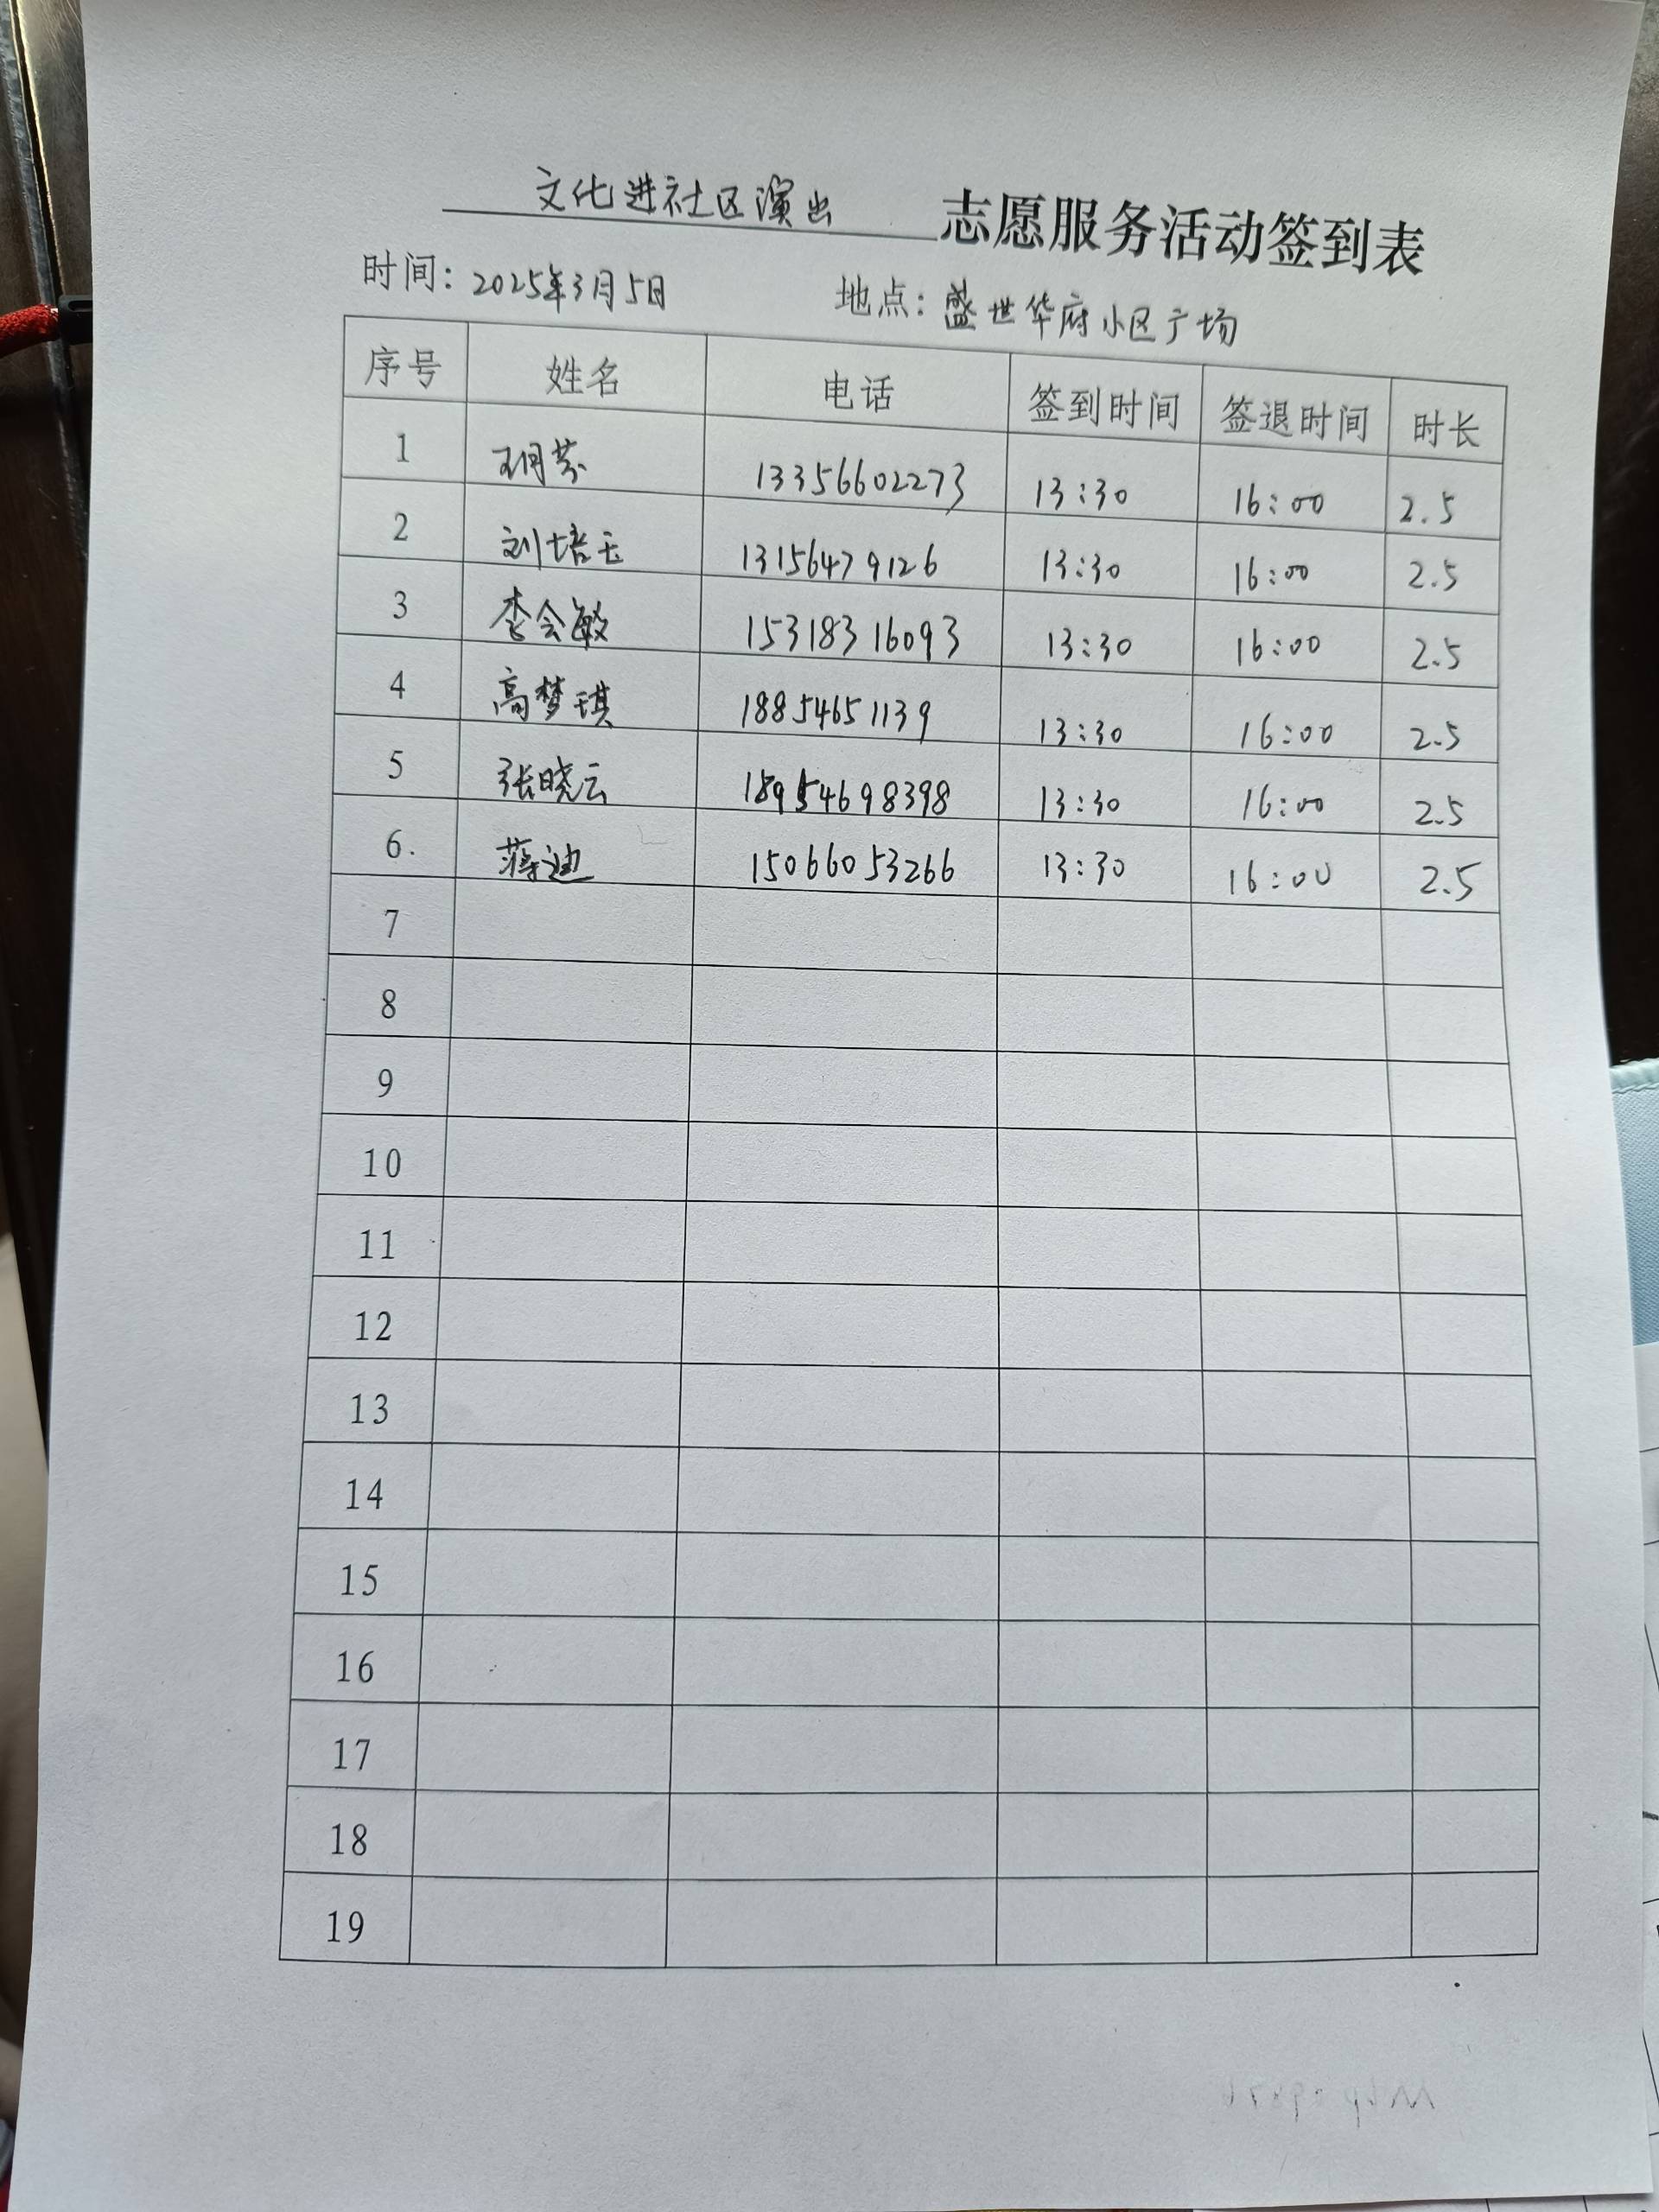 文化进社区演出 志愿服务活动签到表
时间：2025年3月5日 地点：盛世华府小区广场
序号 姓名 电话 签到时间 签退时间 时长
1 13356602273 13:30 16:00 2.5
2 刘培玉 13156479126 13:30 16:00 2.5
3 李会敏 15318316093 13:30 16:00 2.5
4 高梦琪 18854651139 13:30 16:00 2.5
5 张晓云 18954698398 13:30 16:00 2.5
6. 蒋迪 15066053266 13:30 16:00 2.5
7
8
9
10
11
12
13
14
15
16
17
18
19